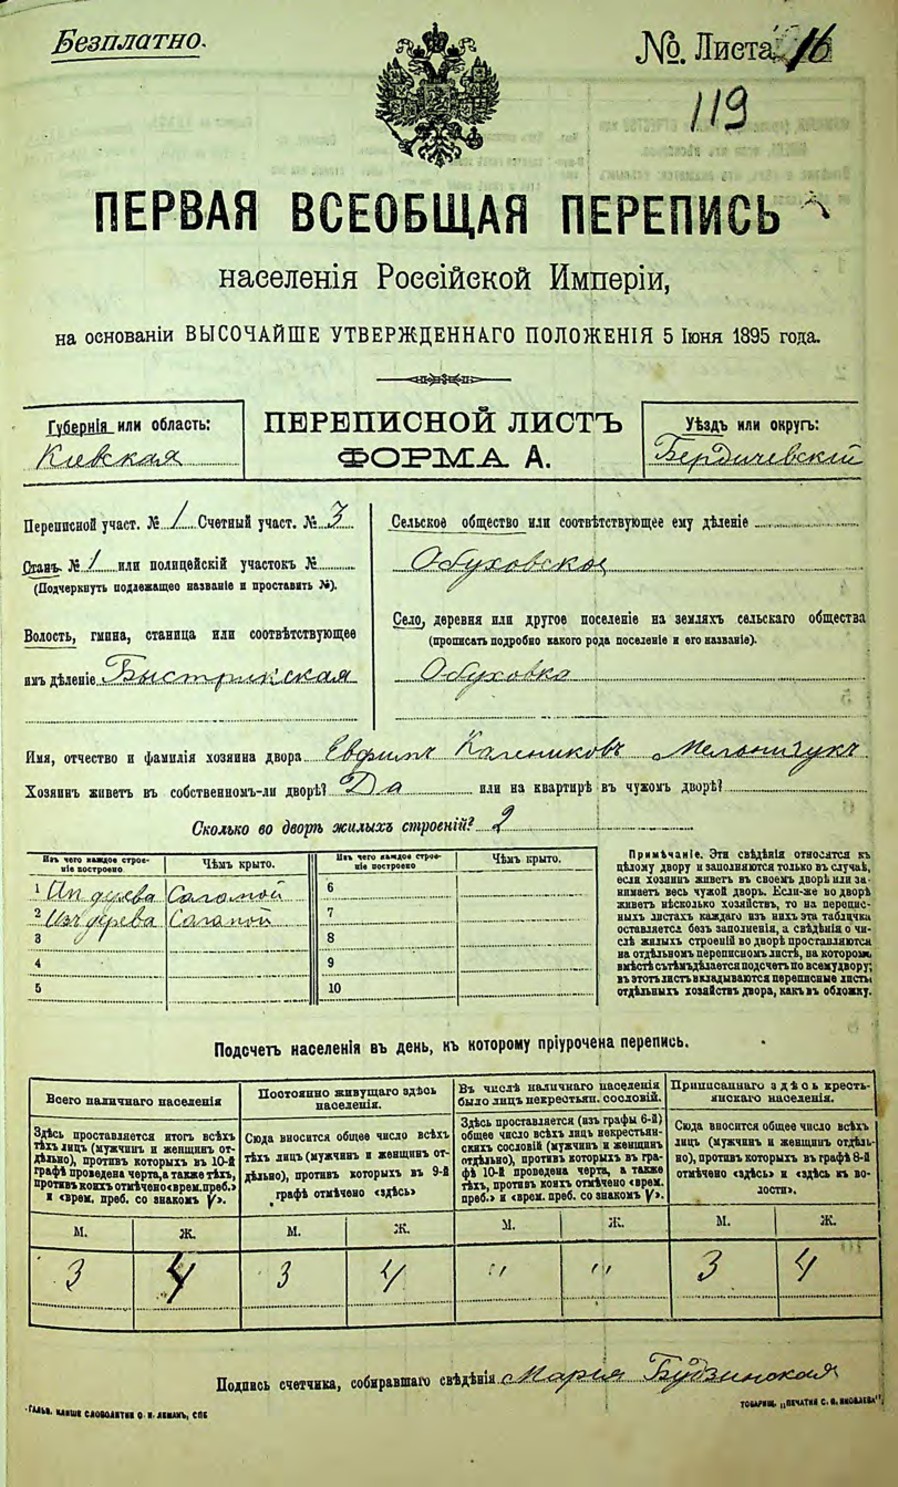 Безплатно.
№ Листа 16
119
ПЕРВАЯ ВСЕОБЩАЯ ПЕРЕПИСЬ
населенія Россійской Имперіи,
на основаніи ВЫСОЧАЙШЕ УТВЕРЖДЕННАГО ПОЛОЖЕНІЯ 5 Іюня 1895 года.
Губернія или область:
Кіевская
ПЕРЕПИСНОЙ ЛИСТЪ
ФОРМА А.
Уѣздъ или округъ:
Бердичевскій
Переписной участ. № 1 Счетный участ. № 3
Станъ № 1 или полицейскій участокъ №
(Подчеркнуть подлежащее названіе и проставить №).
Волость, гмина, станица или соотвѣтствующее
имъ дѣленіе Быстрикская
Сельское общество или соотвѣтствующее ему дѣленіе
Обуховское
Село, деревня или другое поселеніе на земляхъ сельскаго общества
(прописать подробно какого рода поселеніе и его названіе).
Обуховка
Имя, отчество и фамилія хозяина двора Евфимъ Калениковъ Мельничукъ
Хозяинъ живетъ въ собственномъ-ли дворѣ? Да или на квартирѣ въ чужомъ дворѣ?
Сколько во дворѣ жилыхъ строеній? 2
Изъ чего каждое строеніе построено
Чѣмъ крыто.
Изъ чего каждое строеніе построено
Чѣмъ крыто.
1 Изъ дерева Саломой
2 Изъ дерева Саломой
3
4
5
6
7
8
9
10
Примѣчаніе. Эти свѣдѣнія относятся къ
цѣлому двору и заполняются только въ случаѣ,
если хозяинъ живетъ въ своемъ дворѣ или за-
нимаетъ весь чужой дворъ. Если-же во дворѣ
живетъ нѣсколько хозяйствъ, то на перепис-
ныхъ листахъ каждаго изъ нихъ эта табличка
оставляется безъ заполненія, а свѣдѣнія о чи-
слѣ жилыхъ строеній во дворѣ проставляются
на отдѣльномъ переписномъ листѣ, на которомъ
вмѣстѣ съ тѣмъ дѣлается подсчетъ по всему двору;
въ этотъ листъ вкладываются переписные листы
отдѣльныхъ хозяйствъ двора, какъ въ обложку.
Подсчетъ населенія въ день, къ которому пріурочена перепись.
Всего наличнаго населенія
Здѣсь проставляется итогъ всѣхъ
тѣхъ лицъ (мужчинъ и женщинъ от-
дѣльно), противъ которыхъ въ 10-й
графѣ проведена черта, а также тѣхъ,
противъ коихъ отмѣчено «врем. преб.»
и «врем. преб. со знакомъ V».
Постоянно живущаго здѣсь
населенія.
Сюда вносится общее число всѣхъ
тѣхъ лицъ (мужчинъ и женщинъ от-
дѣльно), противъ которыхъ въ 9-й
графѣ отмѣчено «здѣсь»
Въ числѣ наличнаго населенія
было лицъ некрестьян. сословій.
Здѣсь проставляется (изъ графы 6-й)
общее число всѣхъ лицъ некрестьян-
скихъ сословій (мужчинъ и женщинъ
отдѣльно), противъ которыхъ въ гра-
фѣ 10-й проведена черта, а также
тѣхъ, противъ коихъ отмѣчено «врем.
преб.» и «врем. преб. со знакомъ V».
Приписаннаго здѣсь кресть-
янскаго населенія.
Сюда вносится общее число всѣхъ
лицъ (мужчинъ и женщинъ отдѣль-
но), противъ которыхъ въ графѣ 8-й
отмѣчено «здѣсь» и «здѣсь къ во-
лости».
М. Ж. М. Ж. М. Ж. М. Ж.
3 4 3 4 " " 3 4
Подпись счетчика, собиравшаго свѣдѣнія Марія Будзинская
ГАЛЬВ. КЛИШЕ СЛОВОЛИТНИ О. И. ЛЕМАНЪ, СПБ
ТОВАРИЩ. „ПЕЧАТНЯ С. П. ЯКОВЛЕВА"